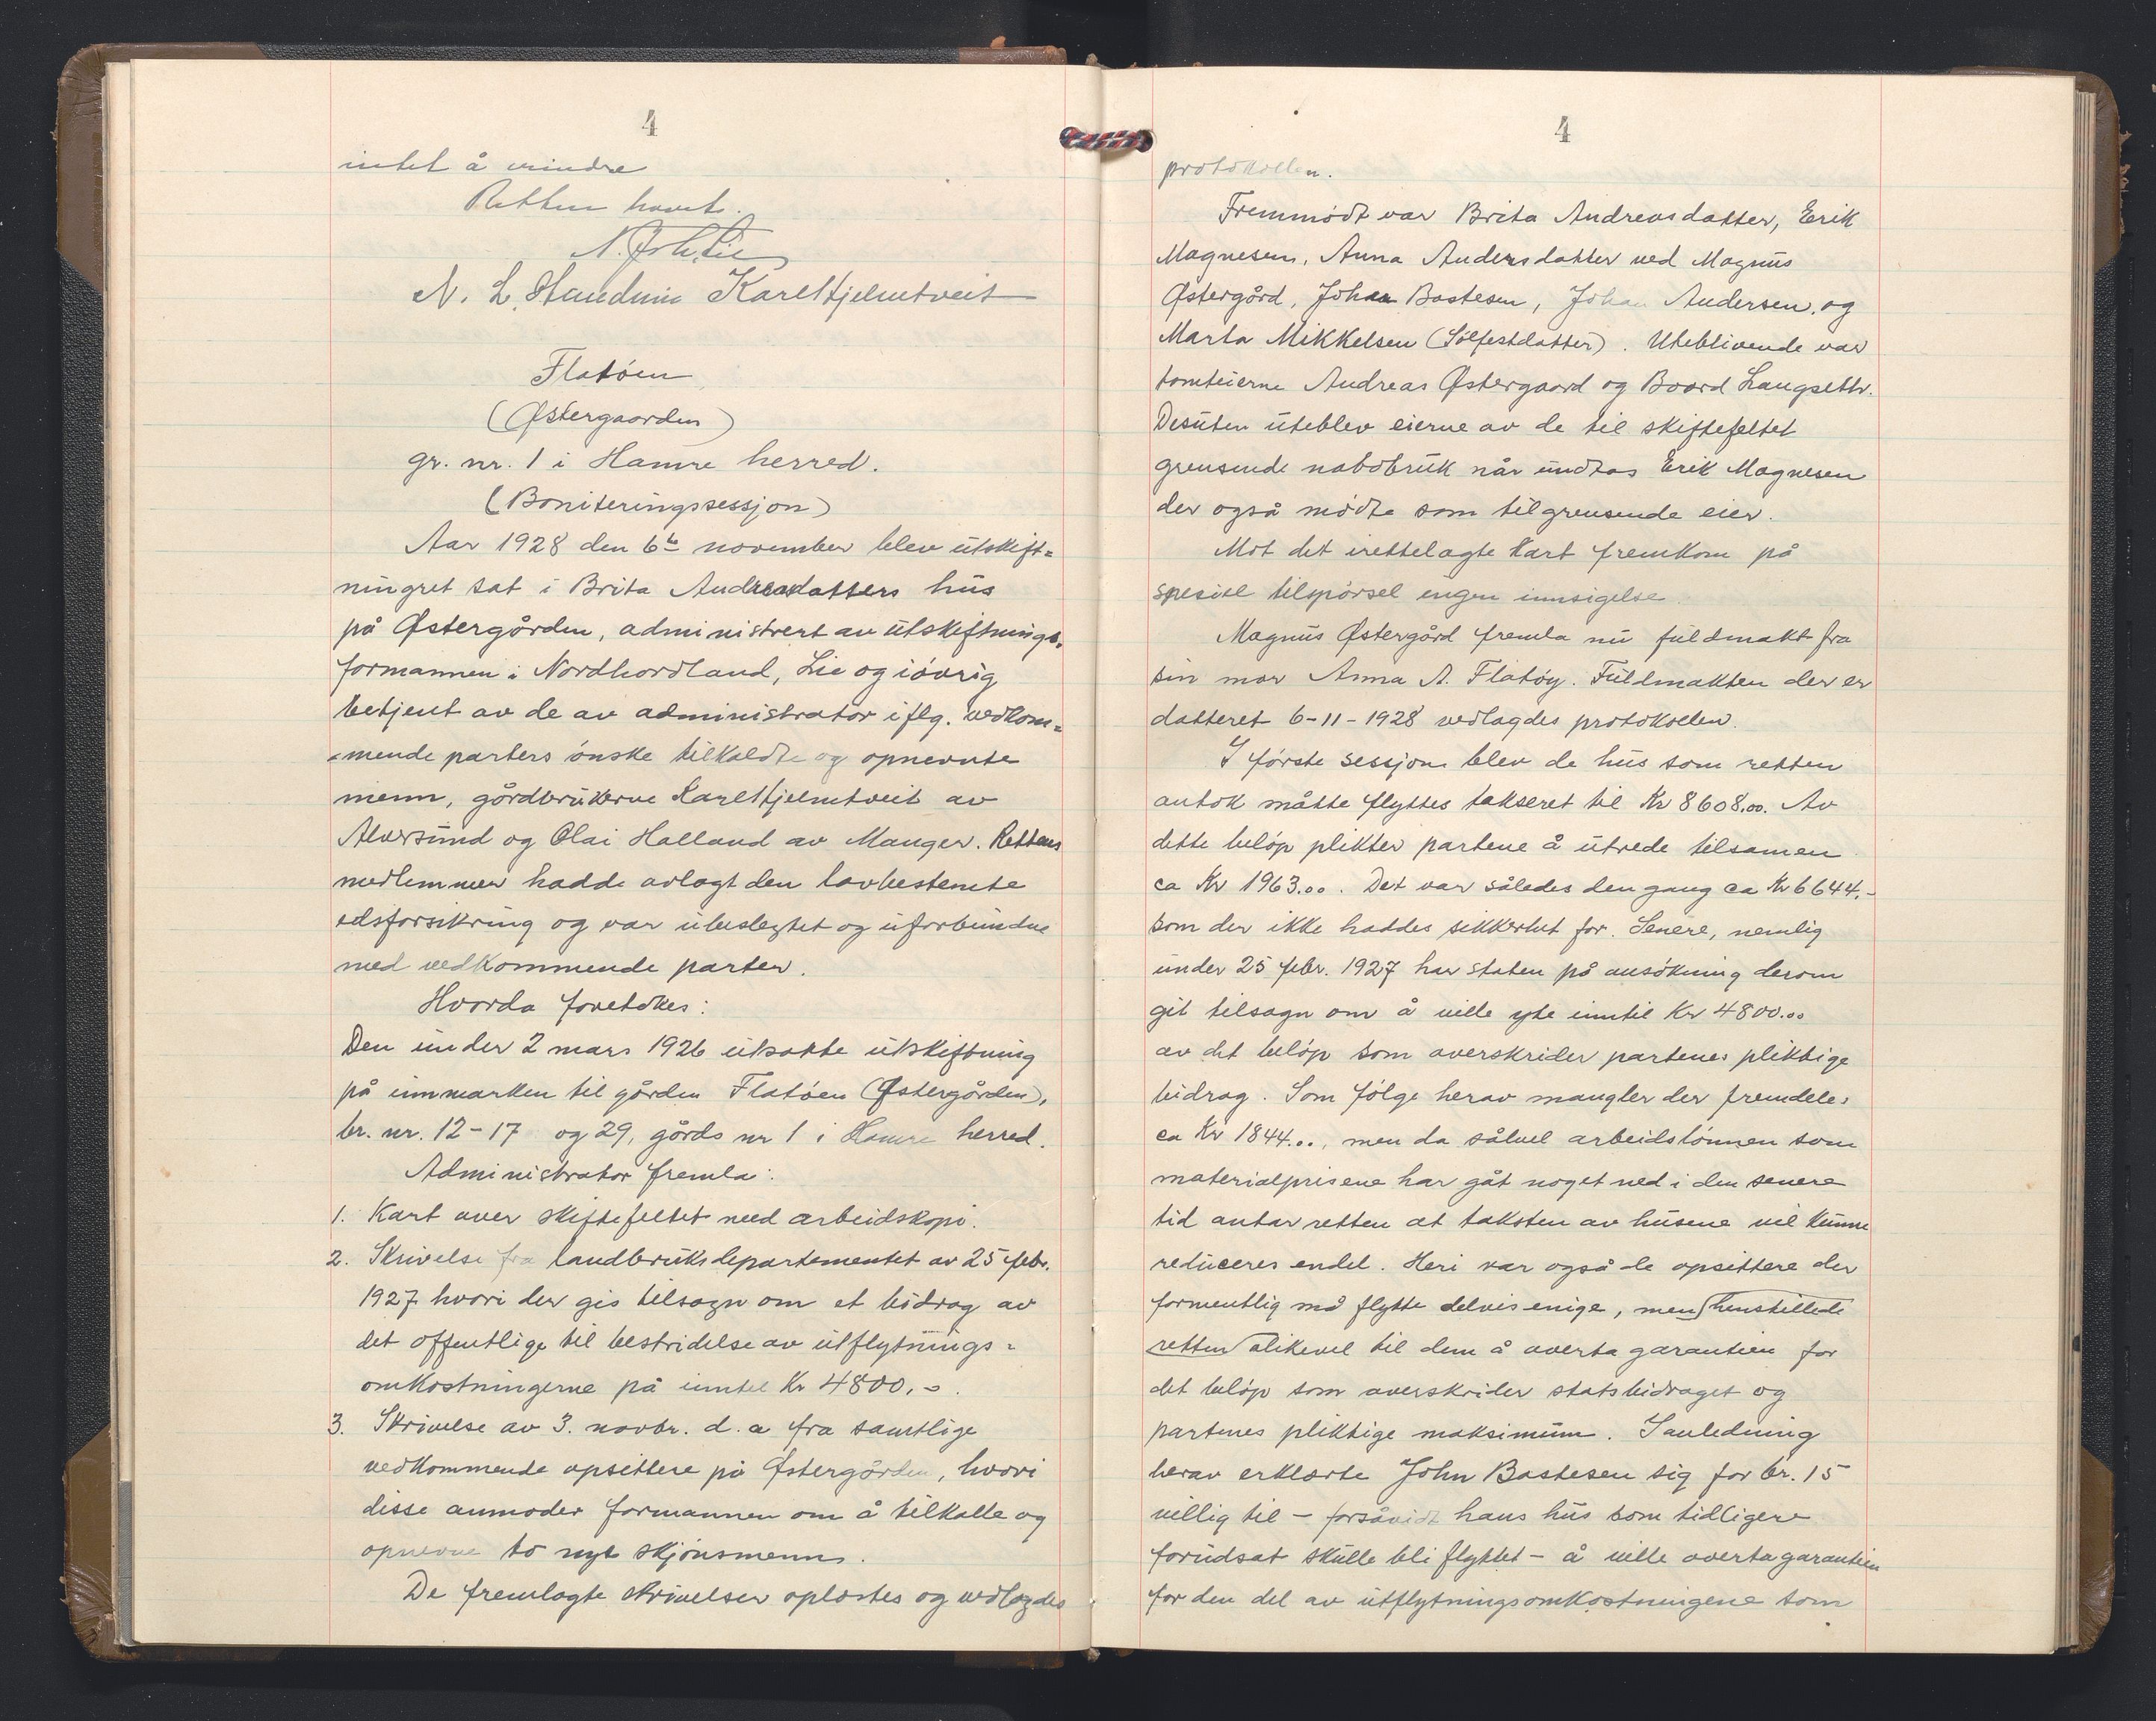 4
intet å erindre
Retten hævet.
N. Joh. Lie
N. L. Karl Hjelmtveit
Flatöen
(Østergaarden)
gr. nr. 1 i Hamre herred.
(Boniteringssessjon)
Aar 1928 den 6te november blev utskift=
ningret sat i Brita Andreasdatters hus
på Østergården, administrert av utskiftnings-
formannen i Nordhordland, Lie og iövrig
betjent av de av administrator iflg. vedkom=
-mende parters önske tilkaldte og opnevnte
menn, gårdbrukerne Karl Hjelmtveit av
Alversund og Olai Halland av Manger. Rettens
medlemmer hadde avlagt den lovbestemte
edsforsikring og var ubeslegtet og uforbundne
med vedkommende parter.
Hvorda foretokes:
Den under 2 mars 1926 utsatte utskiftning
på innmarken til gården Flatöen (Østergården),
br. nr. 12-17 og 29, gårds nr 1 i Hamre herred.
Administrator fremla:
1. Kart over skiftefeltet med arbeidskopi.
2. Skrivelse fra landbruksdepartementet av 25 febr.
1927 hvori der gis tilsagn om et bidrag av
det offentlige til bestridelse av utflytnings=
omkostningerne på inntil Kr 4800,-.
3. Skrivelse av 3. novbr. d.a fra samtlige
vedkommende opsittere på Östergården, hvori
disse anmoder formannen om å tilkalle og
opnevne to nye skjönsmenn.
De fremlagte skrivelser oplæstes og vedlagdes
4
protokollen.
Fremmödt var Brita Andreasdatter, Erik
Magnesen, Anna Andersdatter ved Magnus
Østergård, Johan Bastesen, Johan Andersen, og
Marta Mikkelsen (Sölfestdatter). Uteblivende var
tomteierne Andreas Østergaard og Baard Langseth.
Desuten uteblev eierne av de til skiftefeltet
grensende nabobruk når undtas Erik Magnesen
der også mödte som tilgrensende eier.
Mot det irettelagte kart fremkom på
spesiel tilspörsel engen innsigelse.
Magnus Østergård fremla nu fuldmakt fra
sin mor Anna A. Flatöy. Fuldmakten der er
datteret 6-11-1928 vedlagdes protokollen.
I förste sessjon blev de hus som retten
antok måtte flyttes takseret til Kr 8608.00. Av
dette belöp plikter partene å utrede tilsamen
ca Kr 1963.00. Det var således den gang ca Kr 6644,-
som der ikke haddes sikkerhet for. Senere, nemlig
under 25 febr. 1927 har staten på ansökning derom
git tilsagn om å ville yte inntil Kr 4800.00
av det belöp som overskrider partenes pliktige
bidrag. Som fölge herav mangler der fremdeles
ca Kr 1844.00, men da såvel arbeidslönnen som
materialprisene har gåt noget ned i den senere
tid antar retten at taksten av husene vil kunne
reduceres endel. Heri var også de opsittere der
formentlig må flytte delvis enige, men henstillede
retten alikevel til dem å overta garantien for
det belöp som overskrider statsbidraget og
partenes pliktige maksimum. I anledning
herav erklærte John Bastesen sig for br. 15
villig til - forsåvidt hans hus som tidligere
forudsat skulle bli flyttet - å ville overta garantien
for den del av utflytningsomkostningene som